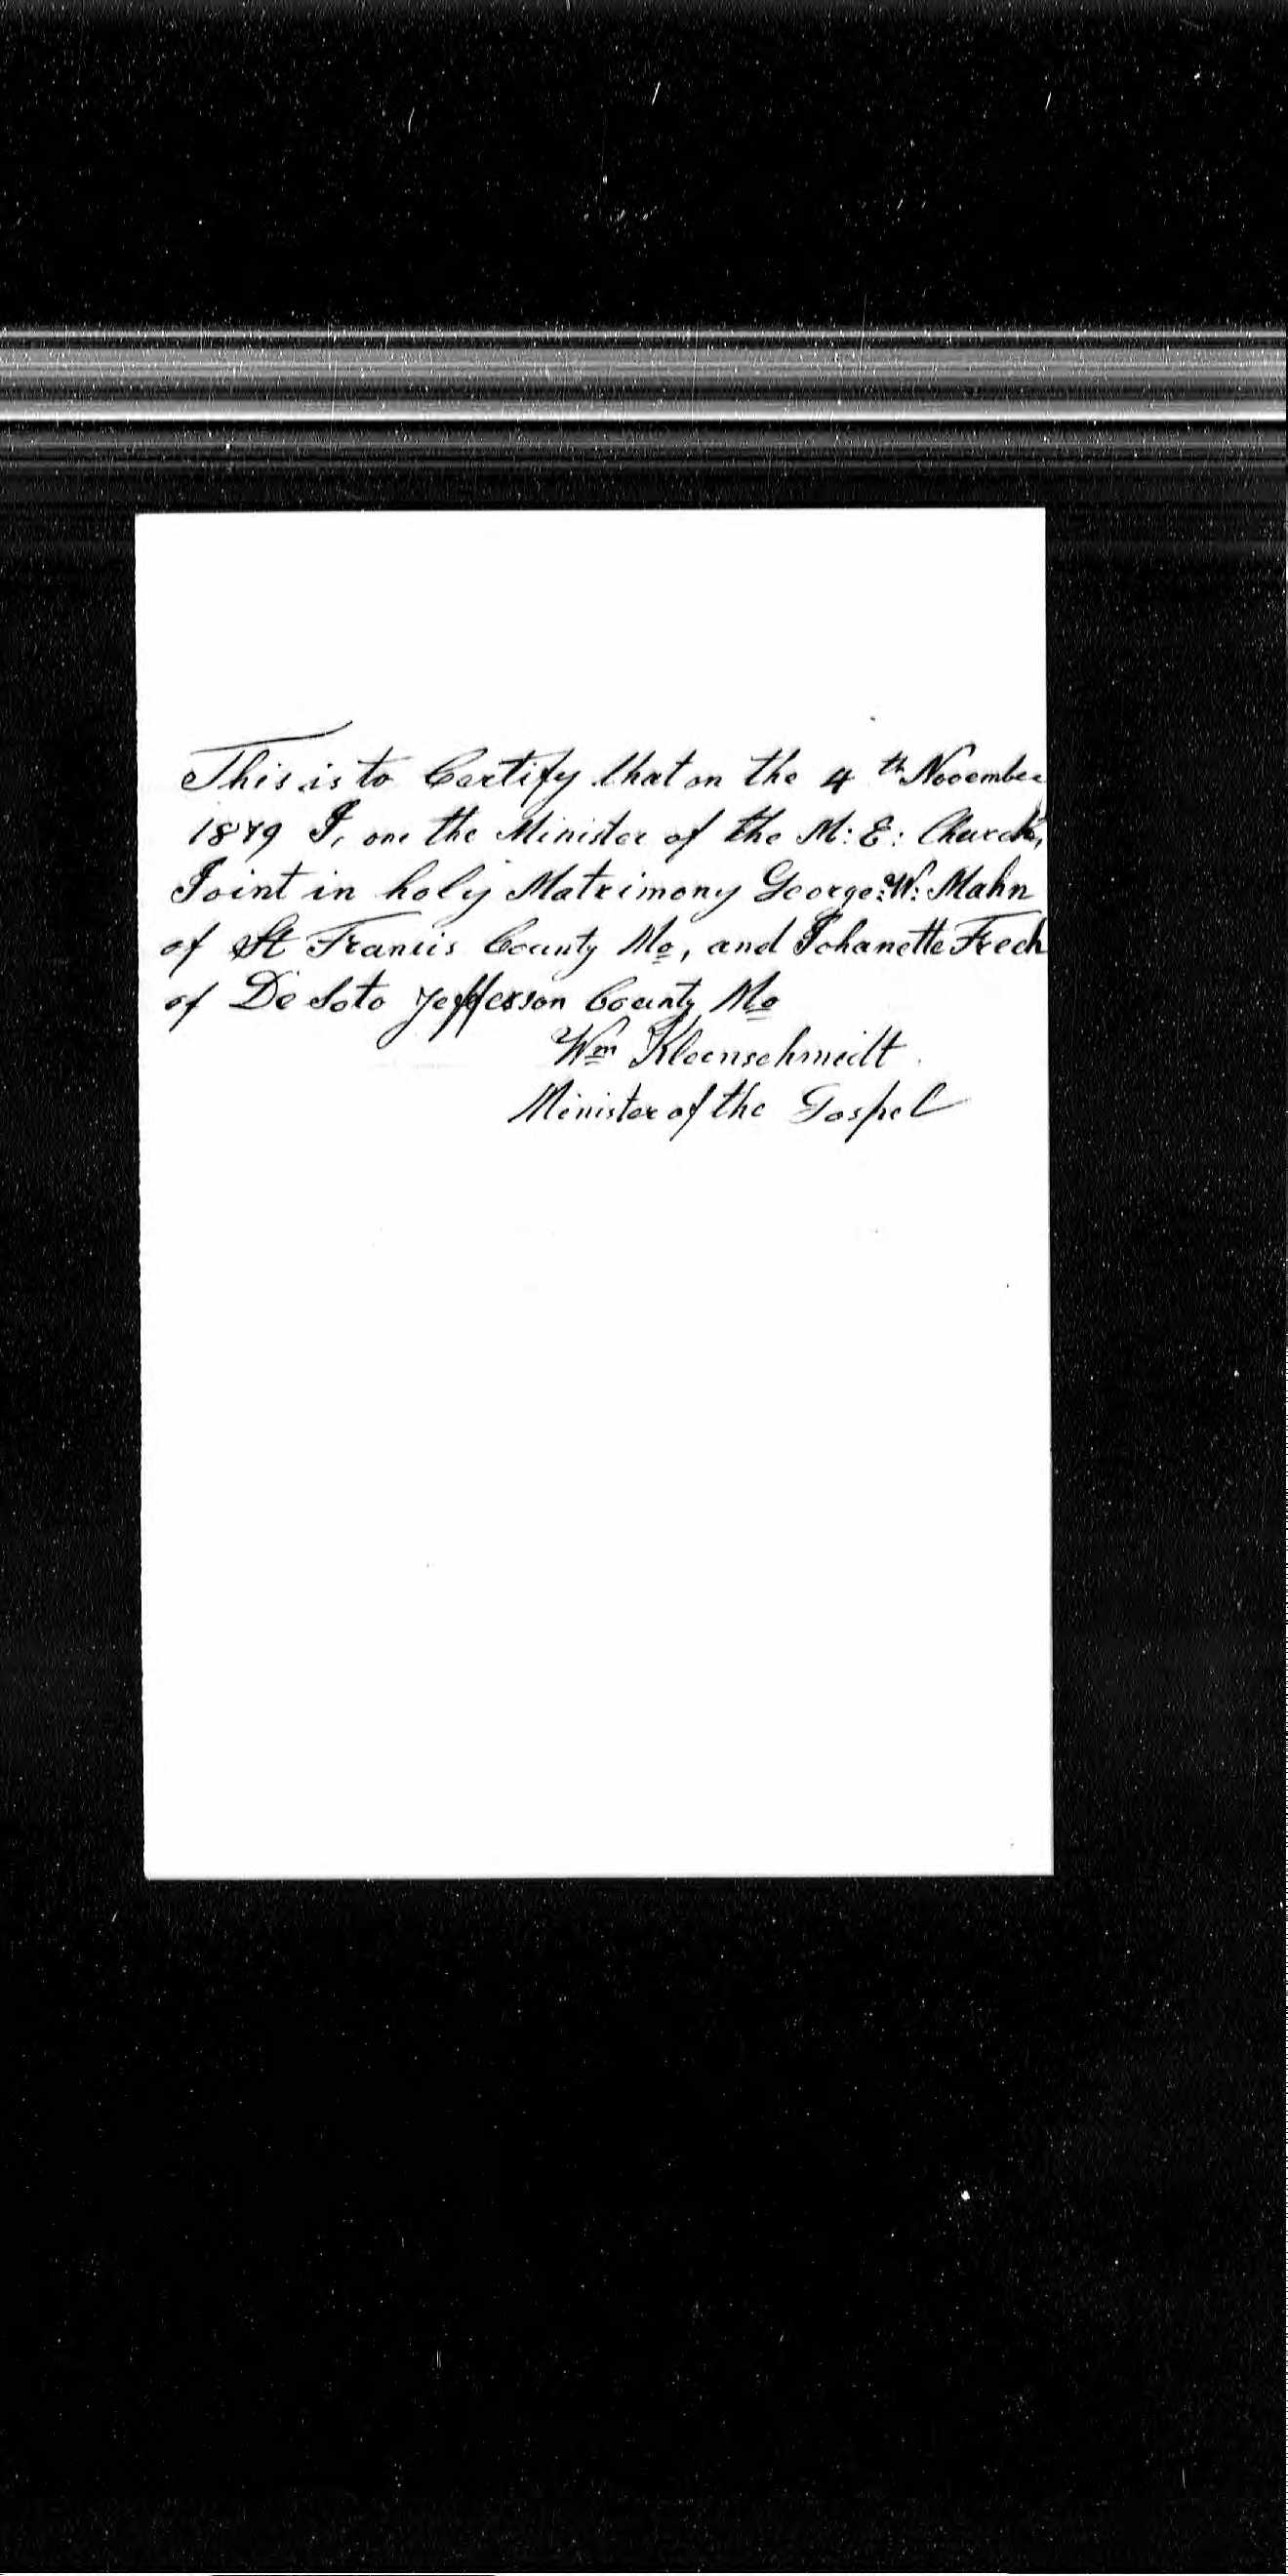 This is to Certify that on the 4th November
1879 I, one the Minister of the M: E: Church,
Joint in holy Matrimony George: W: Mahn
of St Francis County Mo, and Johanette Frech
of De Soto Jefferson County Mo
Wm Kleenschmidt
Minister of the Gospel